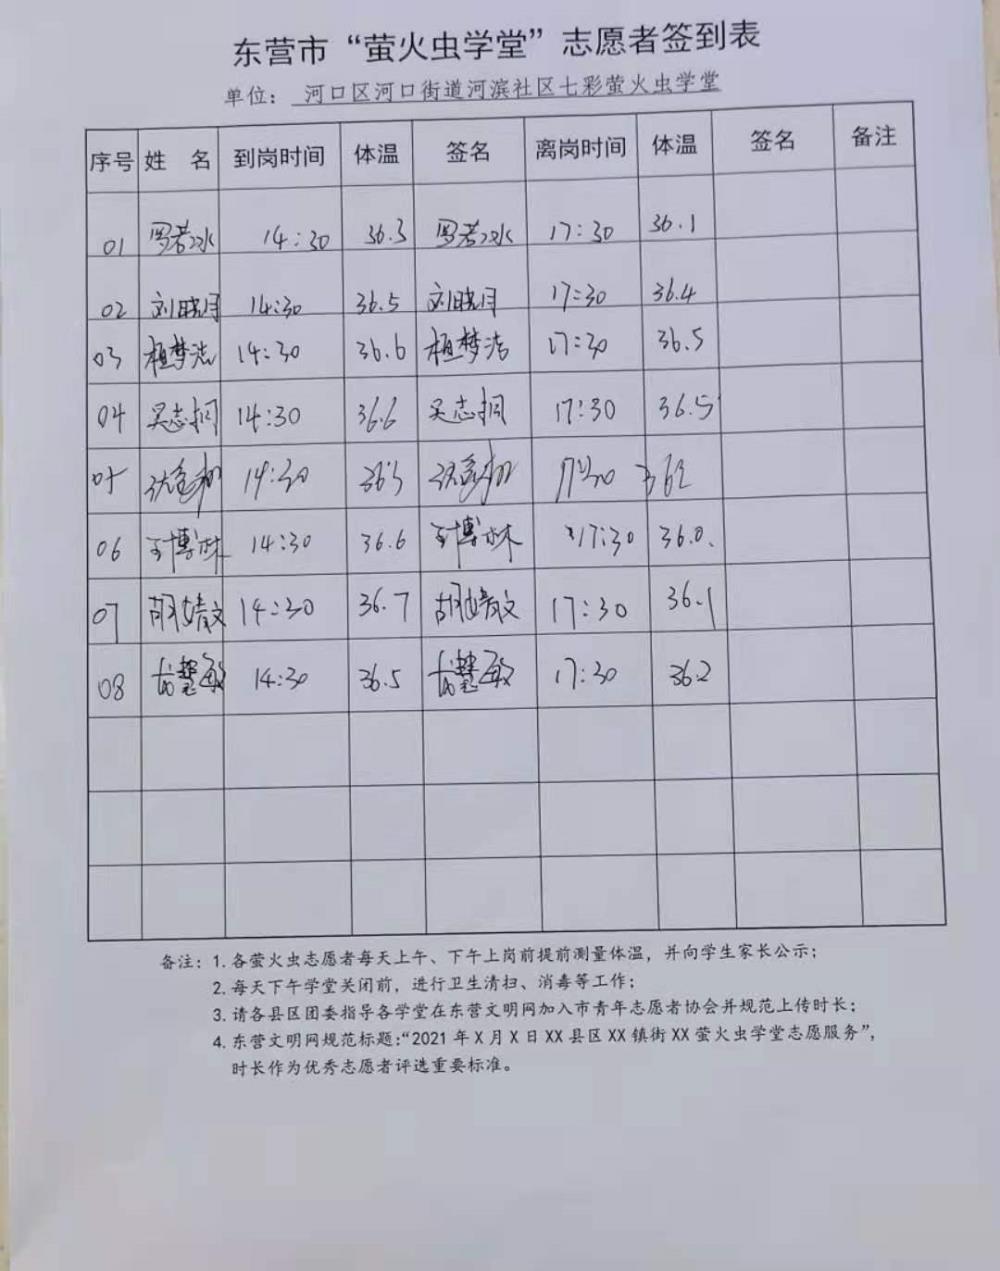 东营市“萤火虫学堂”志愿者签到表
单位：河口区河口街道河滨社区七彩萤火虫学堂
序号 姓 名 到岗时间 体温 签名 离岗时间 体温 签名 备注
01 罗若冰 14:30 36.3 罗若冰 17:30 36.1
02 刘晓月 14:30 36.5 刘晓月 17:30 36.4
03 梦洁 14:30 36.6 梦洁 17:30 36.5
04 吴志桐 14:30 36.6 吴志桐 17:30 36.5
05 14:30 36.5 17:30 36.2
06 王博林 14:30 36.6 王博林 17:30 36.0.
07 胡婧文 14:30 36.7 胡婧文 17:30 36.1
08 慧敏 14:30 36.5 慧敏 17:30 36.2
备注：1. 各萤火虫志愿者每天上午、下午上岗前提前测量体温，并向学生家长公示；
2. 每天下午学堂关闭前，进行卫生清扫、消毒等工作；
3. 请各县区团委指导各学堂在东营文明网加入市青年志愿者协会并规范上传时长；
4. 东营文明网规范标题：“2021 年 X 月 X 日 XX 县区 XX 镇街 XX 萤火虫学堂志愿服务”，
时长作为优秀志愿者评选重要标准。